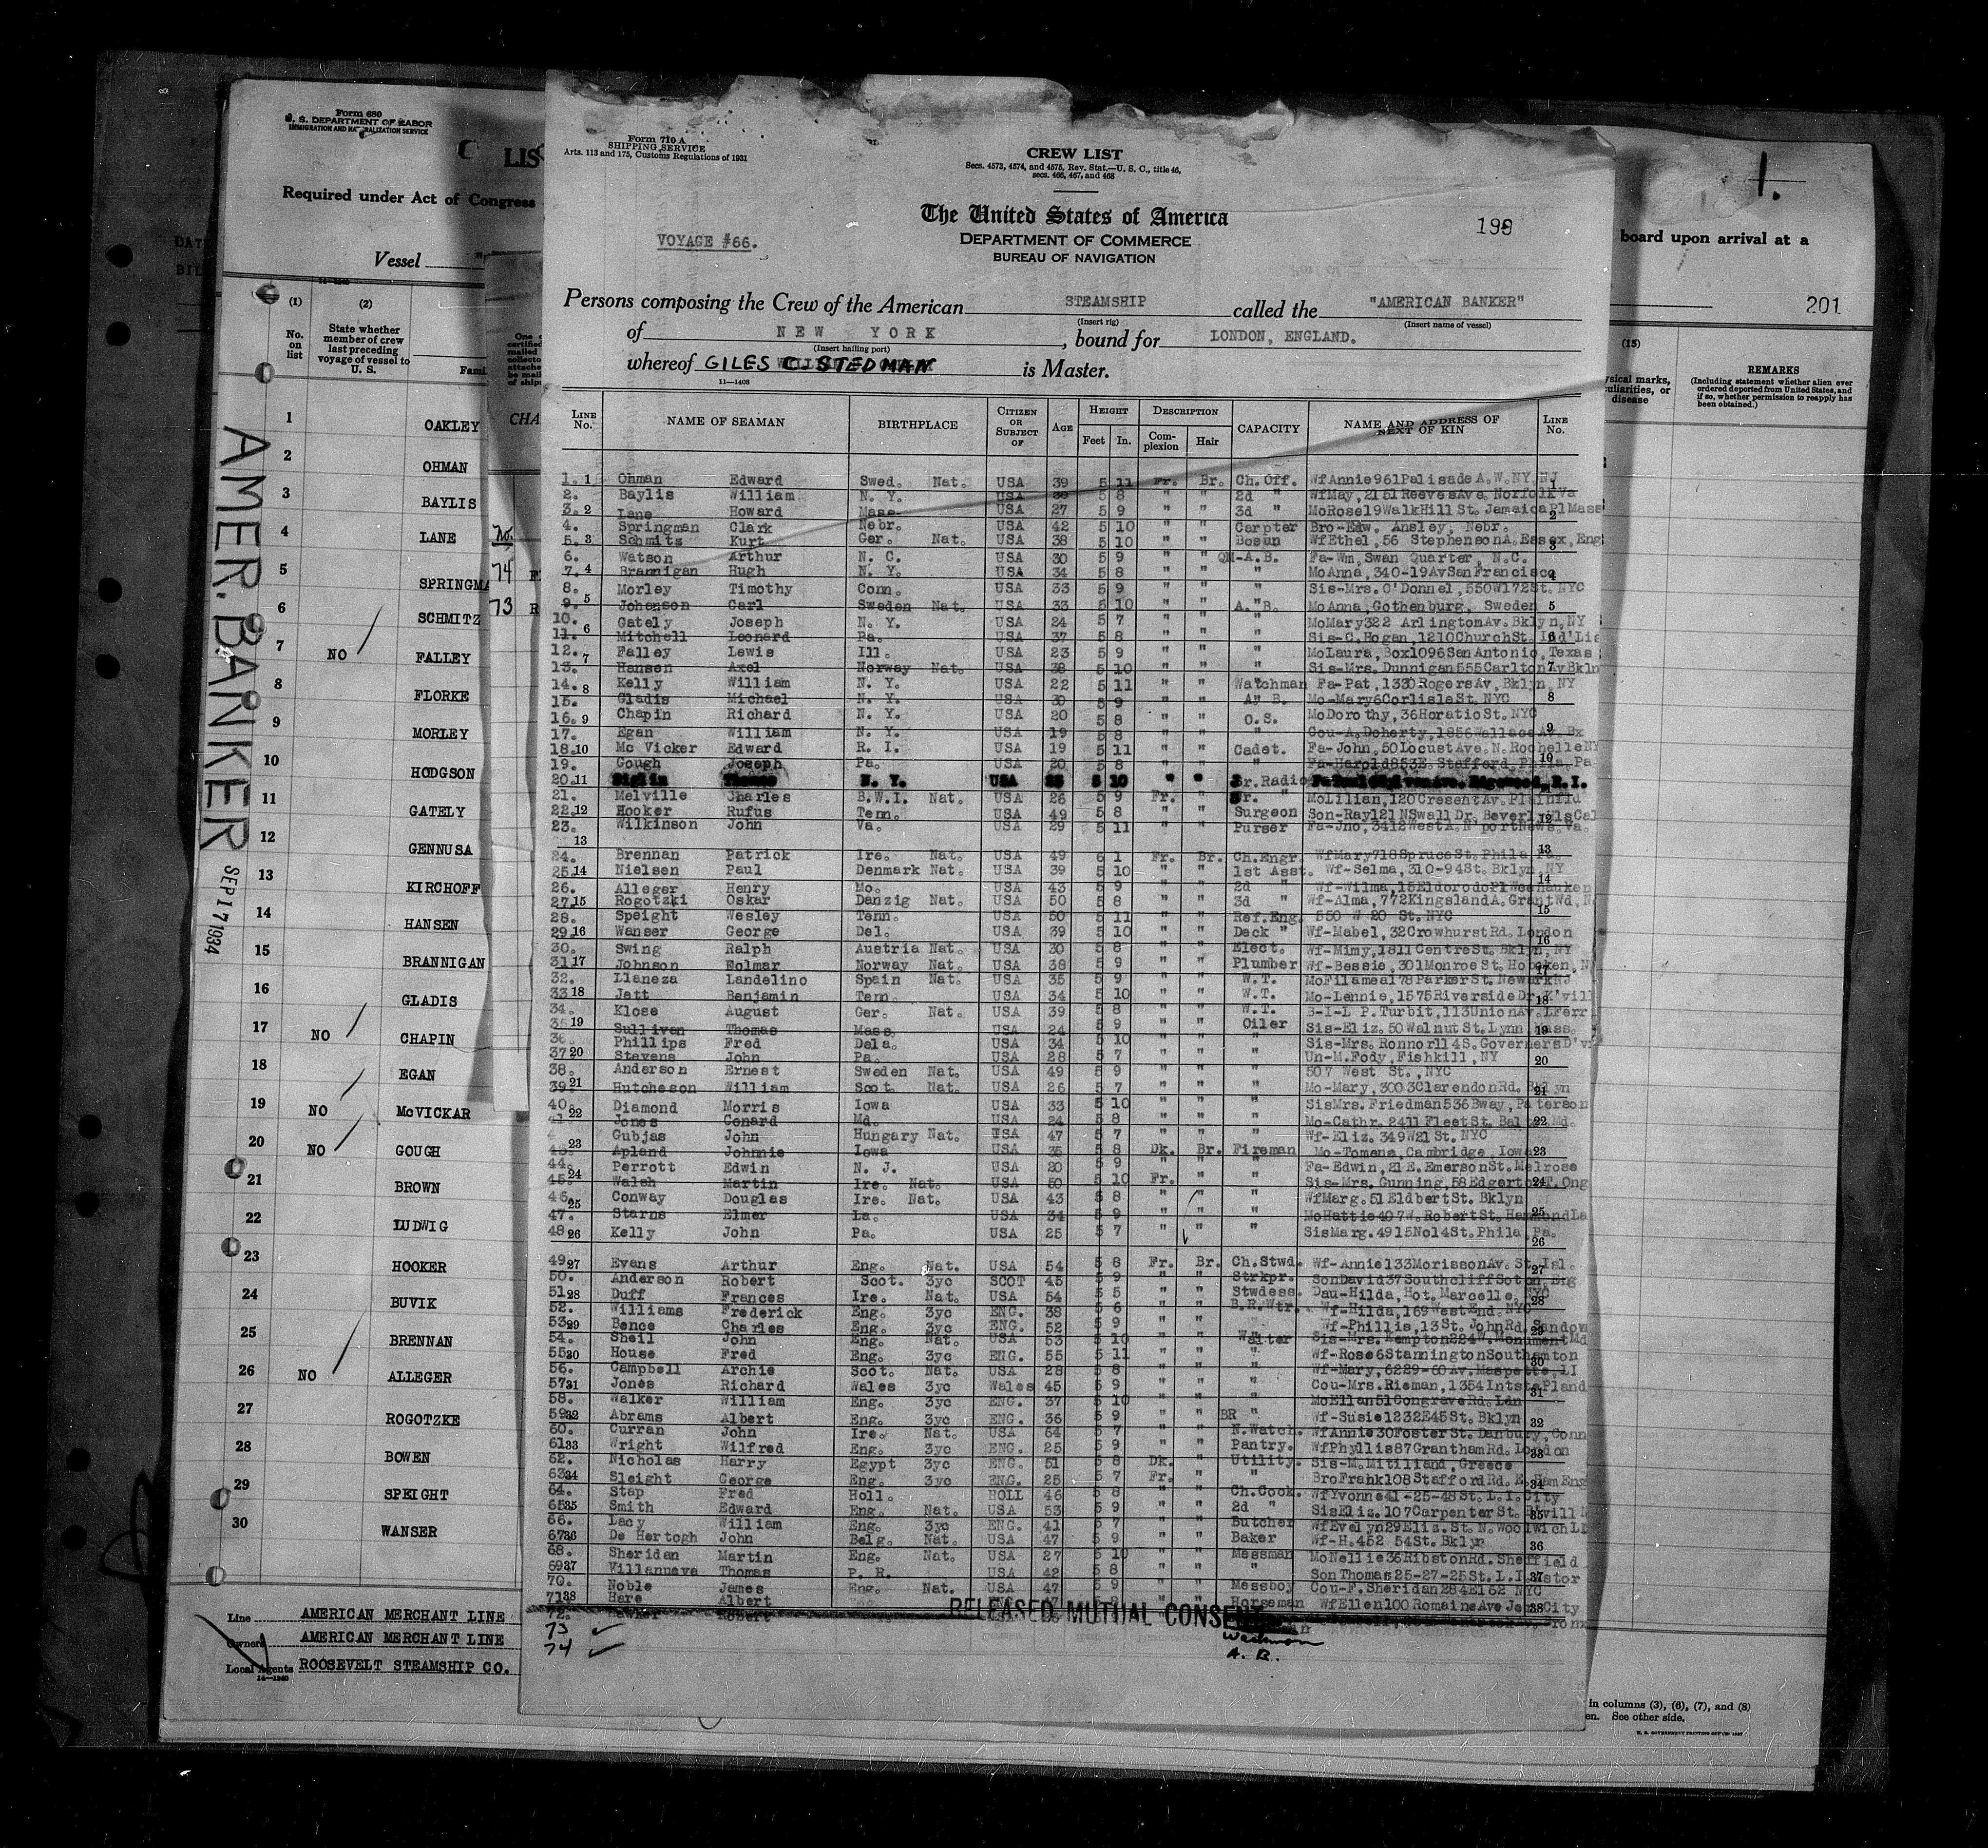 Form 680
U. S. DEPARTMENT OF LABOR
IMMIGRATION AND NATURALIZATION SERVICE
LIS
Required under Act of Congress
Vessel
(1) (2)
No. on list
State whether member of crew last preceding voyage of vessel to U. S.
Fami
1 OAKLEY
2 OHMAN
3 BAYLIS
4 LANE
5 SPRINGMA
6 SCHMITZ
7 NO FALLEY
8 FLORKE
9 MORLEY
10 HODGSON
11 GATELY
12 GENNUSA
13 KIRCHOFF
14 HANSEN
15 BRANNIGAN
16 GLADIS
17 NO CHAPIN
18 EGAN
19 NO McVICKAR
20 NO GOUGH
21 BROWN
22 LUDWIG
23 HOOKER
24 BUVIK
25 BRENNAN
26 NO ALLEGER
27 ROGOTZKE
28 BOWEN
29 SPEIGHT
30 WANSER
AMER. BANKER
SEP 17 1934
Line AMERICAN MERCHANT LINE
Owners AMERICAN MERCHANT LINE
Local Agents ROOSEVELT STEAMSHIP CO.
CHA
No.
74
73
Form 710 A
SHIPPING SERVICE
Arts. 113 and 175, Customs Regulations of 1931
CREW LIST
Secs. 4573, 4574, and 4575, Rev. Stat.—U. S. C., title 46,
secs. 466, 467, and 468
The United States of America
DEPARTMENT OF COMMERCE
BUREAU OF NAVIGATION
VOYAGE #66.
199
Persons composing the Crew of the American STEAMSHIP called the "AMERICAN BANKER"
(Insert rig) (Insert name of vessel)
of NEW YORK, bound for LONDON, ENGLAND.
(Insert hailing port)
whereof GILES C. STEDMAN is Master.
11—1403
LINE No. NAME OF SEAMAN BIRTHPLACE CITIZEN OR SUBJECT OF AGE HEIGHT Feet In. DESCRIPTION Complexion Hair CAPACITY NAME AND ADDRESS OF NEXT OF KIN LINE No.
1. 1 Ohman Edward Swed. Nat. USA 39 5 11 Fr. Br. Ch.Off. WfAnnie961PalisadeA.W.NY,NJ 1
2. Baylis William N. Y. USA 5 8 " " 2d " WfMay,2151ReevesAve. NorfolkVa
3. 2 Lane Howard Mass. USA 27 5 9 " " 3d " MoRose19WalkHillSt. JamaicaPlMass 2
4. Springman Clark Nebr. USA 42 5 10 " " Carpter Bro-Edw. Ansley, Nebr.
5. 3 Schmitz Kurt Ger. Nat. USA 38 5 10 " " Bosun WfEthel,56 StephensonA.Essex,Eng 3
6. Watson Arthur N. C. USA 30 5 9 " " QM-A.B. Fa-Wm,Swan Quarter, N.C.
7. 4 Brannigan Hugh N. Y. USA 34 5 8 " " " MoAnna,340-19AvSanFrancisco 4
8. Morley Timothy Conn. USA 33 5 9 " " " Sis-Mrs. O'Donnel,550W172St.NYC
9. 5 Johanson Carl Sweden Nat. USA 33 5 10 " " A.B. MoAnna,Gothenburg, Sweden 5
10. Gately Joseph N. Y. USA 24 5 7 " " " MoMary322 ArlingtonAv.Bklyn,NY
11. 6 Mitchell Leonard Pa. USA 37 5 8 " " " Sis-C.Hogan,1210ChurchSt. 6
12. Falley Lewis Ill. USA 23 5 9 " " " MoLaura,Box1096SanAntonio,Texas
13. 7 Hansen Axel Norway Nat. USA 38 5 10 " " " Sis-Mrs.Dunnigan555CarltonAvBkln 7
14. Kelly William N. Y. USA 22 5 11 " " Watchman Fa-Pat,1330RogersAv,Bklyn,NY
15. 8 Gladis Michael N. Y. USA 30 5 9 " " A.B. Mo-Mary6CorlisleSt.NYC 8
16. 9 Chapin Richard N. Y. USA 20 5 8 " " O.S. MoDorothy,36HoratioSt.NYC
17. Egan William N. Y. USA 19 5 8 " " " Cou-A.Doherty,1856WallaceAv Bx 9
18. 10 Mc Vicker Edward R. I. USA 19 5 11 " " Cadet. Fa-John,50LocustAve.N.RochelleNY
19. Gough Joseph Pa. USA 20 5 8 " " " Fa-Harold853E. Stafford Phila,Pa 10
20. 11 N. Y. USA 5 10 " " Sr.Radio R.I.
21. Melville Charles B.W.I. Nat. USA 26 5 9 Fr. " Jr. " MoLilian,120CresentAv.Plainfild
22. 12 Hooker Rufus Tenn. USA 49 5 8 " " Surgeon Son-Ray121NSwall Dr. 12
23. Wilkinson John Va. USA 29 5 11 " " Purser Fa-Jno,3412WestA.N'portNews.Va.
13
24. Brennan Patrick Ire. Nat. USA 49 6 1 Fr. Br. Ch.Engr. WfMary718SpruceSt.Phila 13
25 14 Nielsen Paul Denmark Nat. USA 39 5 10 " " 1st Asst. Wf-Selma,310-94St.Bklyn,NY
26. Alleger Henry Mo. USA 43 5 9 " " 2d " Wf-Wilma,15EldorodoPlWeehauken 14
27 15 Rogotzki Oskar Danzig Nat. USA 50 5 8 " " 3d " Wf-Alma,772KingslandA.GrantWd,N
28. Speight Wesley Tenn. USA 50 5 11 " " Ref.Eng. 550 W 20 St.NYC 15
29 16 Wanser George Del. USA 39 5 10 " " Deck " Wf-Mabel,32CrowhurstRd.London
30. Swing Ralph Austria Nat. USA 30 5 8 " " Elect. Wf-Mimy,1811CentreSt.Bklyn,NY 16
31 17 Johnson Holmar Norway Nat. USA 38 5 9 " " Plumber Wf-Bessie,301MonroeSt.Hoboken,N 17
32. Llaneza Landelino Spain Nat. USA 35 5 9 " " W.T. MoFilamea178ParkerSt.NewarkNJ
33 18 Jett Benjamin Tenn. USA 34 5 10 " " W.T. Mo-Lennie,1575RiversideDr.K'vill 18
34. Klose August Ger. Nat. USA 39 5 8 " " W.T. B-I-L P.Turbit,113UnionAv.LFerr
35 19 Sullivan Thomas Mass. USA 24 5 9 " " Oiler Sis-Eliz.50WalnutSt.Lynn,Mass. 19
36 Phillips Fred Dela. USA 34 5 10 " " " Sis-Mrs. Ronnor114S.GovernersD'v
37 20 Stevens John Pa. USA 28 5 7 " " " Un-M.Fody,Fishkill,NY 20
38. Anderson Ernest Sweden Nat. USA 49 5 9 " " " 507 West St.,NYC
39 21 Hutcheson William Scot. Nat. USA 26 5 7 " " " Mo-Mary,3003ClarendonRd. Bklyn 21
40. 22 Diamond Morris Iowa USA 33 5 10 " " " SisMrs.Friedman536Bway,Paterson
41. Jones Conard Md. USA 24 5 8 " " " Mo-Cathr.2411FleetSt.Balto.Md. 22
23 Gubjas John Hungary Nat. USA 47 5 7 " " " Wf-Eliz.349W21St.NYC
43. Apland Johnnie Iowa USA 35 5 8 Dk. Br. Fireman Mo-Tomena,Cambridge,Iowa 23
44. 24 Perrott Edwin N. J. USA 20 5 9 " " " Fa-Edwin,21E.EmersonSt.Melrose
45. Walsh Martin Ire. Nat. USA 50 5 10 Fr. " Sis-Mrs.Gunning,58Edgerton 24
46. 25 Conway Douglas Ire. Nat. USA 43 5 8 " " " WfMarg.51EldbertSt.Bklyn
47. Starns Elmer La. USA 34 5 9 " " " MoHattie407W.RobertSt.HammondLa 25
48 26 Kelly John Pa. USA 25 5 7 " " " SisMarg.4915No14St.Phila,Pa. 26
49 27 Evans Arthur Eng. Nat. USA 54 5 8 Fr. Br. Ch.Stwd. Wf-Annie133MorissonAv.St.Isl. 27
50. Anderson Robert Scot. 3yc SCOT 45 5 9 " " Strkpr. SonDavid37SouthcliffSoton,Eng
51 28 Duff Frances Ire. Nat. USA 54 5 5 " " Stwdess. Dau-Hilda,Hot.Marcelle,NYC 28
52. Williams Frederick Eng. 3yc ENG. 38 5 6 " " B.R.Wtr. Wf-Hilda,169WestEnd.NYC
53 29 Bence Charles Eng. 3yc ENG. 52 5 9 " " Wf-Phillis,13St.JohnRd.Sandow 29
54. Sheil John Eng. Nat. USA 53 5 10 " " Waiter Sis-Mrs.Kempton224W.MonumentMd
55 30 House Fred Eng. 3yc ENG. 55 5 11 " " " Wf-Rose6StanningtonSouthamton 30
56. Campbell Archie Scot. Nat. USA 28 5 8 " " " Wf-Mary,6229-60Av.Maspette,LI
57 31 Jones Richard Wales 3yc Wales 45 5 9 " " " Cou-Mrs.Rieman,1354 31
58. Walker William Eng. 3yc ENG. 37 5 10 " " " MoEllen51CongraveRd.Ldn
59 32 Abrams Albert Eng. 3yc ENG. 36 5 9 " " BR " Wf-Susie1232E45St.Bklyn 32
60. Curran John Ire. Nat. USA 64 5 7 " " N.Watch. WfAnnie30FosterSt.Danbury,Conn
61 33 Wright Wilfred Eng. 3yc ENG. 25 5 9 " " Pantry. WfPhyllis87GranthamRd.London 33
62. Nicholas Harry Egypt 3yc ENG. 51 5 8 Dk. " Utility. Sis-M.Mitiliand,Greece
63 34 Sleight George Eng. 3yc ENG. 25 5 7 Fr. " " BroFrank108StaffordRd.E.HamEng 34
64. Stap Fred Holl. HOLL 46 5 8 " " Ch.Cook. WfYvonne41-25-48St.L.I.City
65 35 Smith Edward Eng. Nat. USA 53 5 9 " " 2d " SisEliz.107CarpenterSt. 35
66. Lacy William Eng. 3yc ENG. 41 5 7 " " Butcher WfEvelyn29Eliz.St.N.Woolwich
67 36 De Hertogh John Belg. Nat. USA 47 5 9 " " Baker Wf-H.452 54St.Bklyn 36
68. Sheridan Martin Eng. Nat. USA 27 5 10 " " Messman MoNellie36RibstonRd.Sheffield
69 37 Villanueva Thomas P. R. USA 42 5 8 " " " SonThomas25-27-25St.L.I. 37
70. Noble James Eng. Nat. USA 47 5 9 " " Messboy Cou-F.Sheridan284E162 NYC
71 38 Hare Albert Horseman WfEllen100RomaineAve City 38
72. Robert
RELEASED MUTUAL CONSENT
73
74 A. B.
1.
board upon arrival at a
201
(15)
REMARKS
(Including statement whether alien ever ordered deported from United States, and if so, whether permission to reapply has been obtained.)
in columns (3), (6), (7), and (8)
See other side.